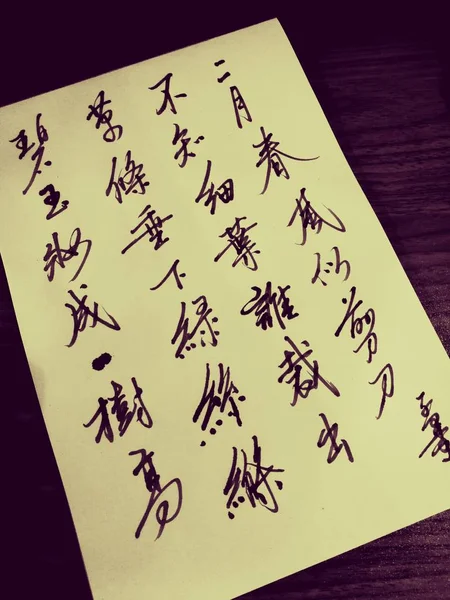 碧玉妝成一樹高
萬條垂下綠絲絛
不知細葉誰裁出
二月春風似剪刀